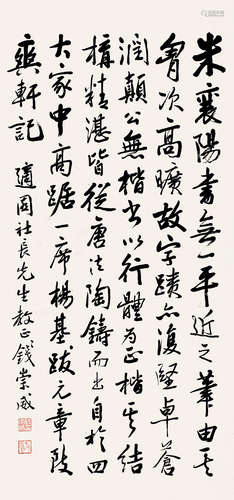 米襄陽書無一平近之筆由其
胷次高曠故字蹟亦復堅卓蒼
潤顛公無楷書以行體為正楷其結
構精湛皆從唐法陶鑄而出自於四
大家中高踞一席楊基跋元章陂
奐軒記
適園社長先生教正錢崇威